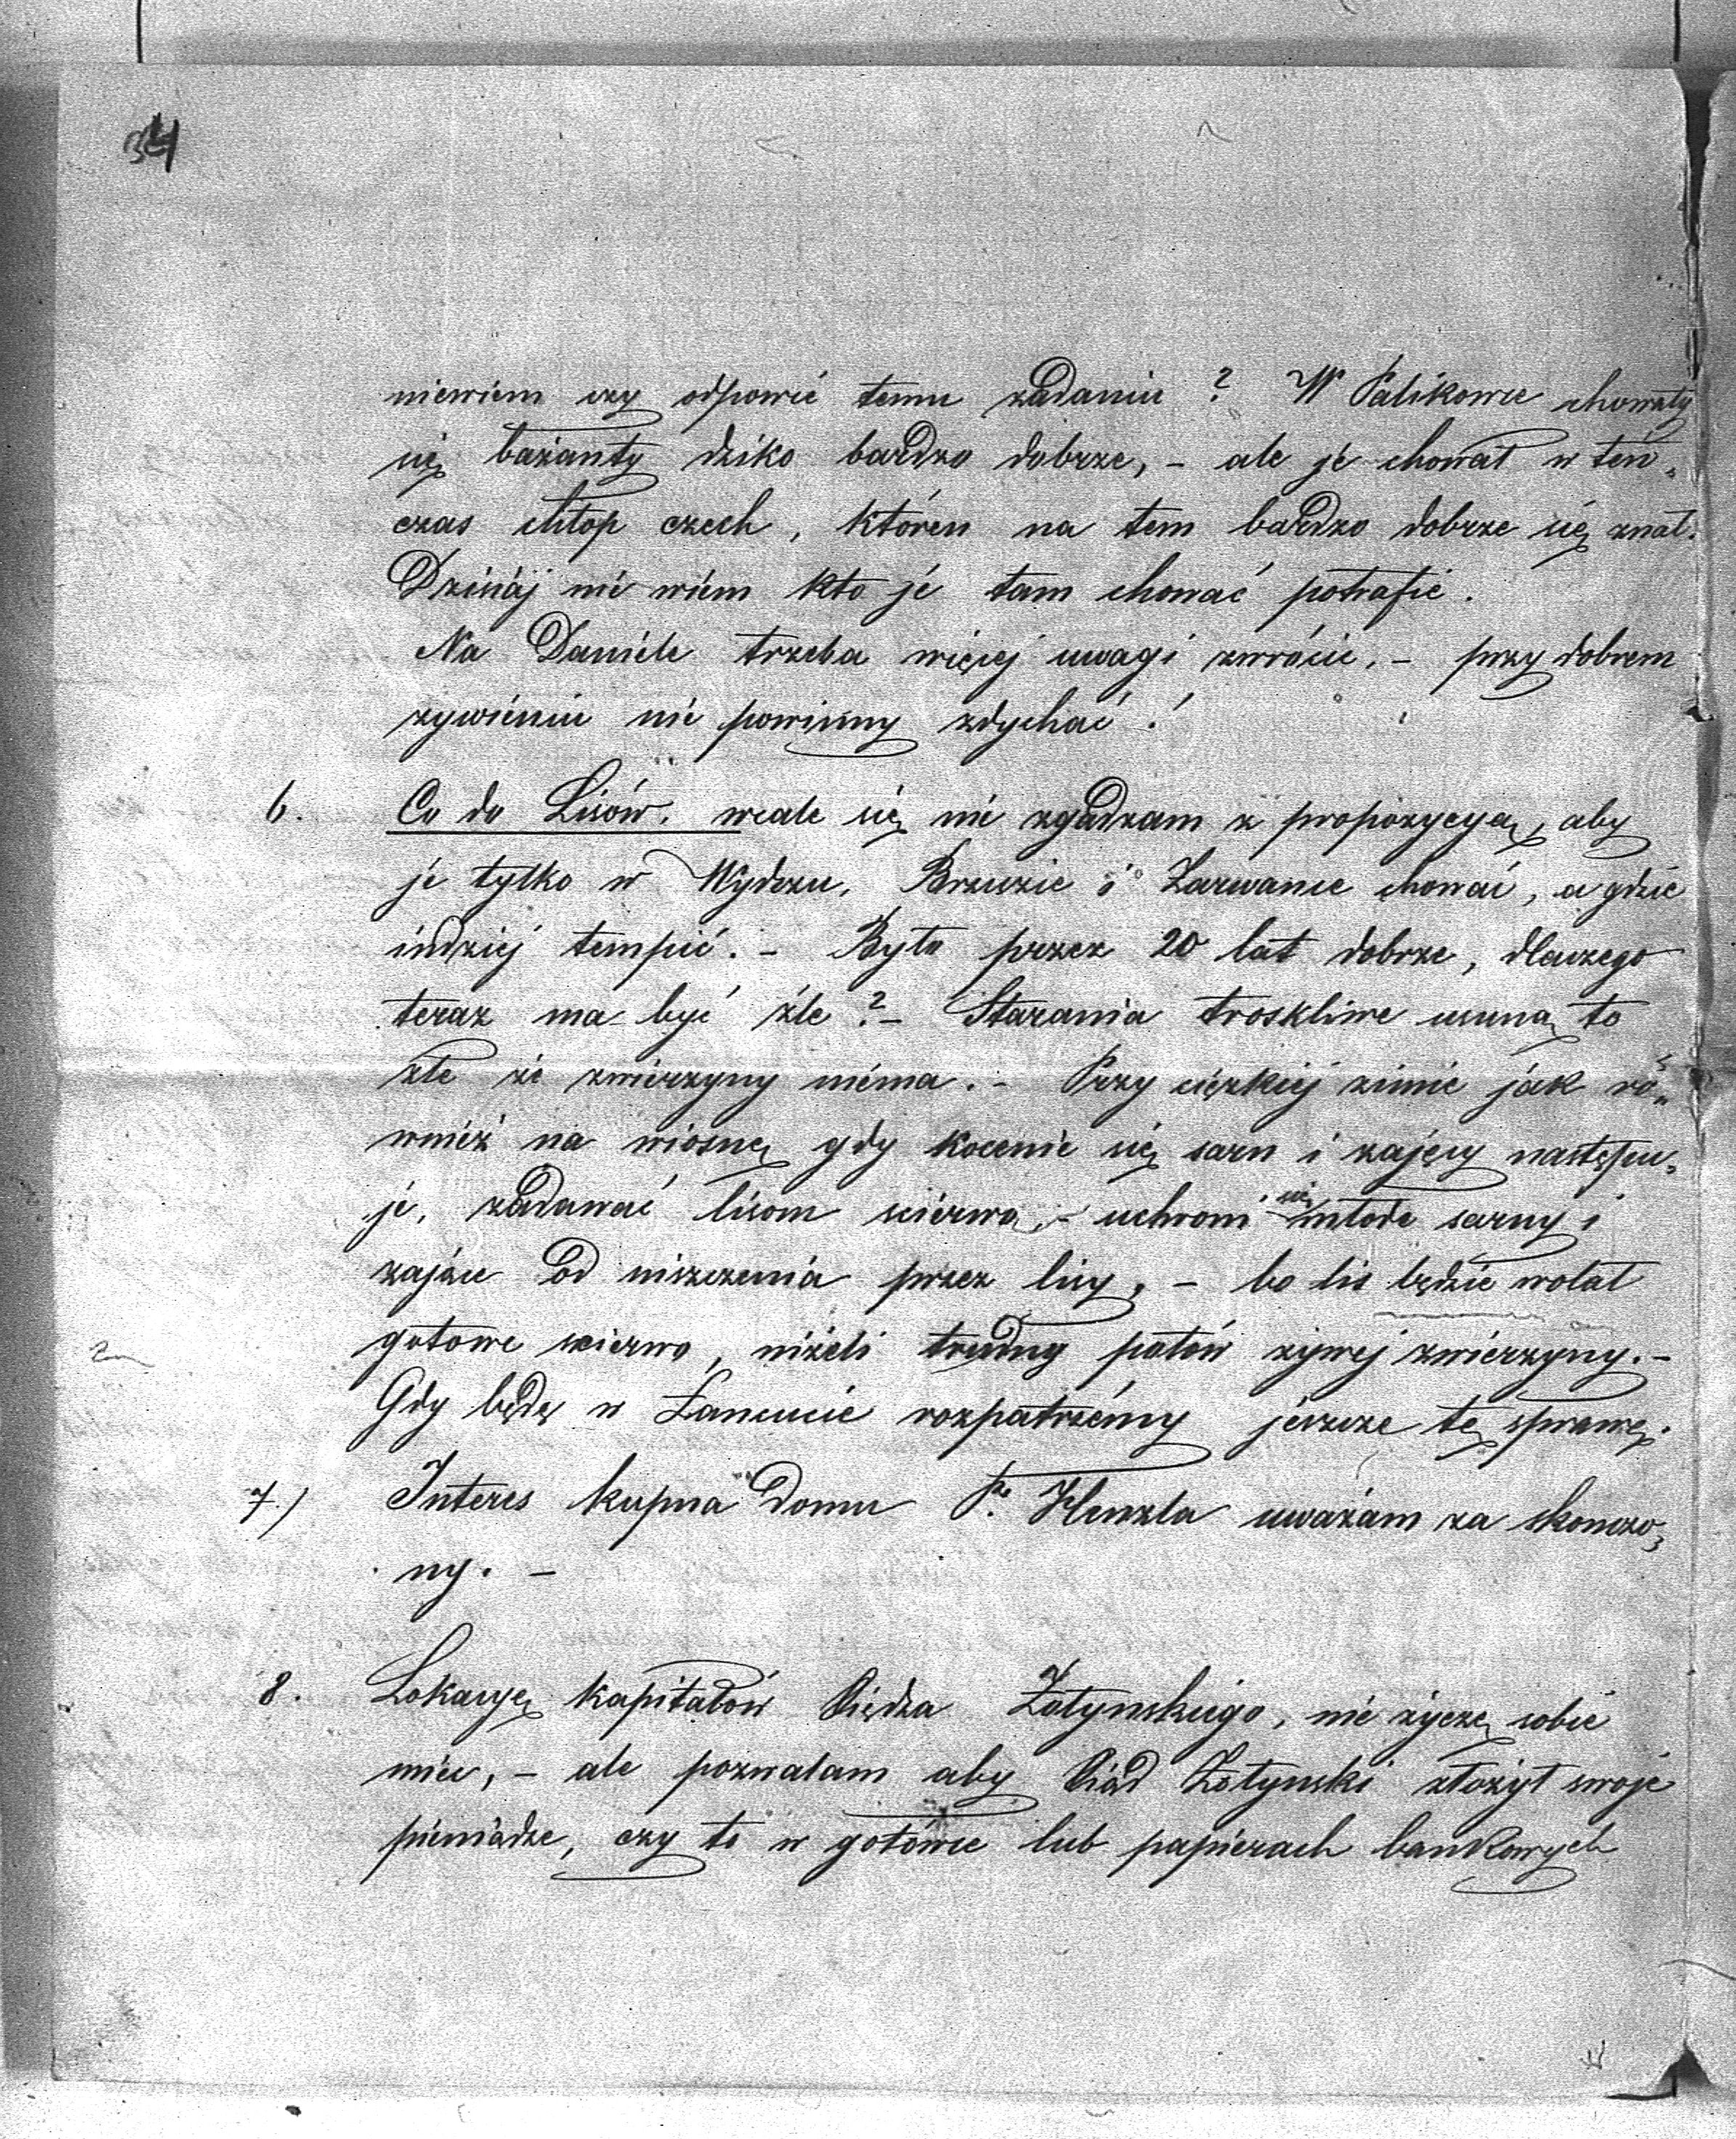 34
niewiem czy odpowié temu zadaniu? W Palikowce chowały
się bażanty dziko bardzo dobrze, – ale je chował w ten„
czas chłop czech, któren na tem bardzo dobrze się znał.
Dzisiáj nié wiém kto jé tam chować potrafié.
Na Daniéle trzeba więcej uwagi zwrócić. – przy dobrem
zywiéniu nié powinny zdychać!
6. Co do Lisów. wcale się nié zgadzam z propozycyą, aby
je tylko w Wydrzu, Brzuzie i Zarwance chować, a gdzie
indziej tempić. – Było przez 20 lat dobrze, dlaczego
teraz ma być źle? – Starania troskliwe usuną to
złe że zwierzyny niéma. – Przy ciężkiej zimie jak ró„
wniéż na wiosnę gdy kocenie się sarn i zajęcy następu„
jé, zadawać lisom sciérwo, – uchroni się młode sarny i
zające od niszczenia przez lisy, – bo lis będzie wolał
gotowe scierwo, niżeli trudny połów zywej zwiérzyny. –
Gdy będę w Łancucie rozpatrzémy jeszcze tę sprawę.
7.) Interes kupna domu P. Henzla uważam za skonczo„
ny. –
8. Lokacyę kapitałów Księdza Zołynskiego, nié życzę sobie
miec, – ale pozwalam aby Ksiąd Zołynski złożył swoje
pieniądze, czy to w gotówce lub papierach bankowych